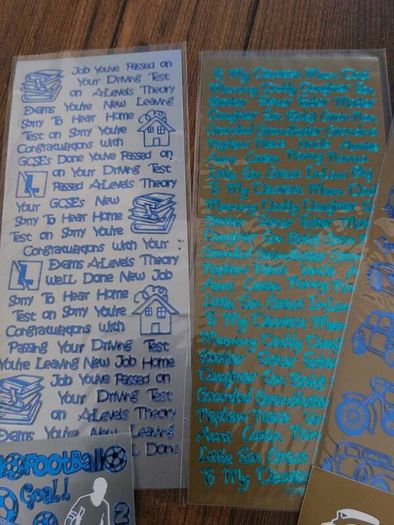 Job You've Passed on
Your Driving Test
on A-Levels Theory
Exams You're New Leaving
Sorry To Hear Home
Test on Sorry You're
Congratulations With
GCSE's Done You've Passed on
on Your Driving Test
Passed A-Levels Theory
Your GCSE's New
Sorry To Hear Home
Test on Sorry You're
Congratulations With Your
Exams A-Levels Theory
Well Done New Job
Sorry To Hear Home
Test on Sorry You're
Congratulations With
Passing Your Driving Test
You're Leaving New Job Home
Job You've Passed on
Your Driving Test
on A-Levels Theory
Exams You're New Leaving
Done
Football
Goal!
2
To My Dearest Mum Dad
Mummy Daddy Daughter Son
Brother Sister Sister
Daughter Son Baby
Grandad Grandmother
Nephew Niece Uncle Auntie
Aunt Cousin Nanny
Little Son Great In-Law Boy
To My Dearest Mum Dad
Mummy Daddy Daughter
Brother Sister Sister
Daughter Son Baby
Grandad Grandmother
Nephew Niece Uncle
Aunt Cousin Nanny
Little Son Great In-Law
To My Dearest Mum
Mummy Daddy Daughter
Brother Sister Sister
Daughter Son Baby
Grandad Grandmother
Nephew Niece
Aunt Cousin Nanny
Little Son Great
To My Dearest